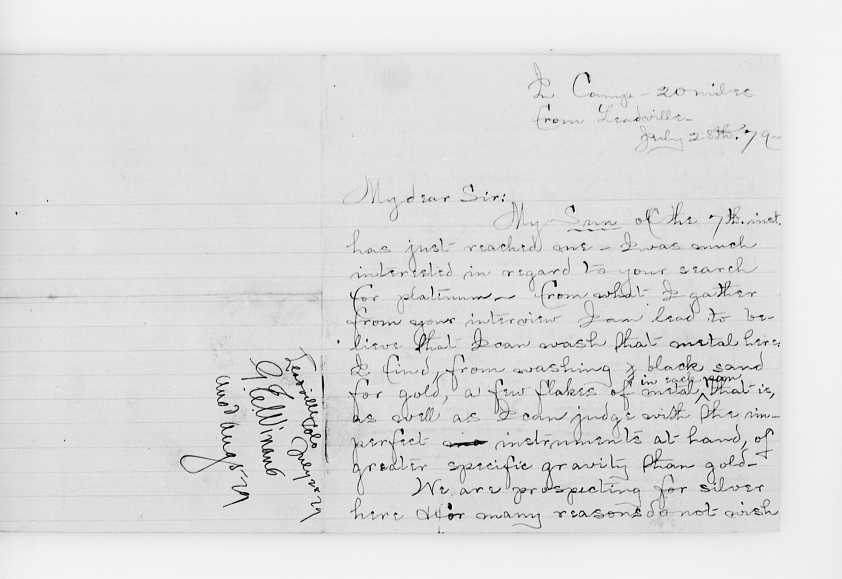 In Camp - 20 miles
from Leadville -
July 28th. 79 -
My dear Sir:
My Sun of the 7th. inst.
has just reached me - I was much
interested in regard to your search
for platinum - From what I gather
from your interview I am lead to be-
lieve that I can wash that metal here.
I find, from washing black sand
for gold, a few flakes of metal in each pan, that is,
as well as I can judge with the im-
perfect instruments at hand, of
greater specific gravity than gold -
We are prospecting for silver
here & for many reasons do not wish
Leadville Colo
July 28 79
G E Winans
ansd Aug 5 - 79